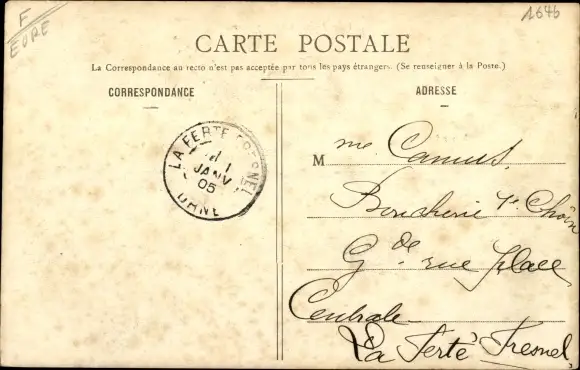 F
EURE
1646
CARTE POSTALE
La Correspondance au recto n'est pas acceptée par tous les pays étrangers. (Se renseigner à la Poste.)
CORRESPONDANCE
ADRESSE
LA FERTE FRESNEL
1
JANV
05
ORNE
M me Camus,
Boucherie 1er Choix
Gde rue place
Centrale
La Ferté Fresnel,